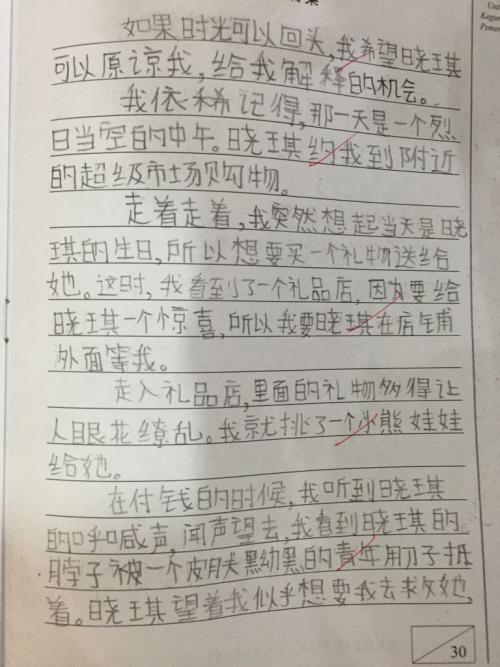 如果时光可以回头，我希望晓琪
可以原谅我，给我解释的机会。
我依稀记得，那一天是一个烈
日当空的中午。晓琪约我到附近
的超级市场购物。
走着走着，我突然想起当天是晓
琪的生日，所以想要买一个礼物送给
她。这时，我看到了一个礼品店，因为要给
晓琪一个惊喜，所以我要晓琪在店铺
外面等我。
走入礼品店，里面的礼物多得让
人眼花缭乱。我就挑了一个小熊娃娃
给她。
在付钱的时候，我听到晓琪
的呼喊声，闻声望去，我看到晓琪的
脖子被一个皮肤黑幼黑的青年用刀子抵
着。晓琪望着我似乎想要我去求救她，
30